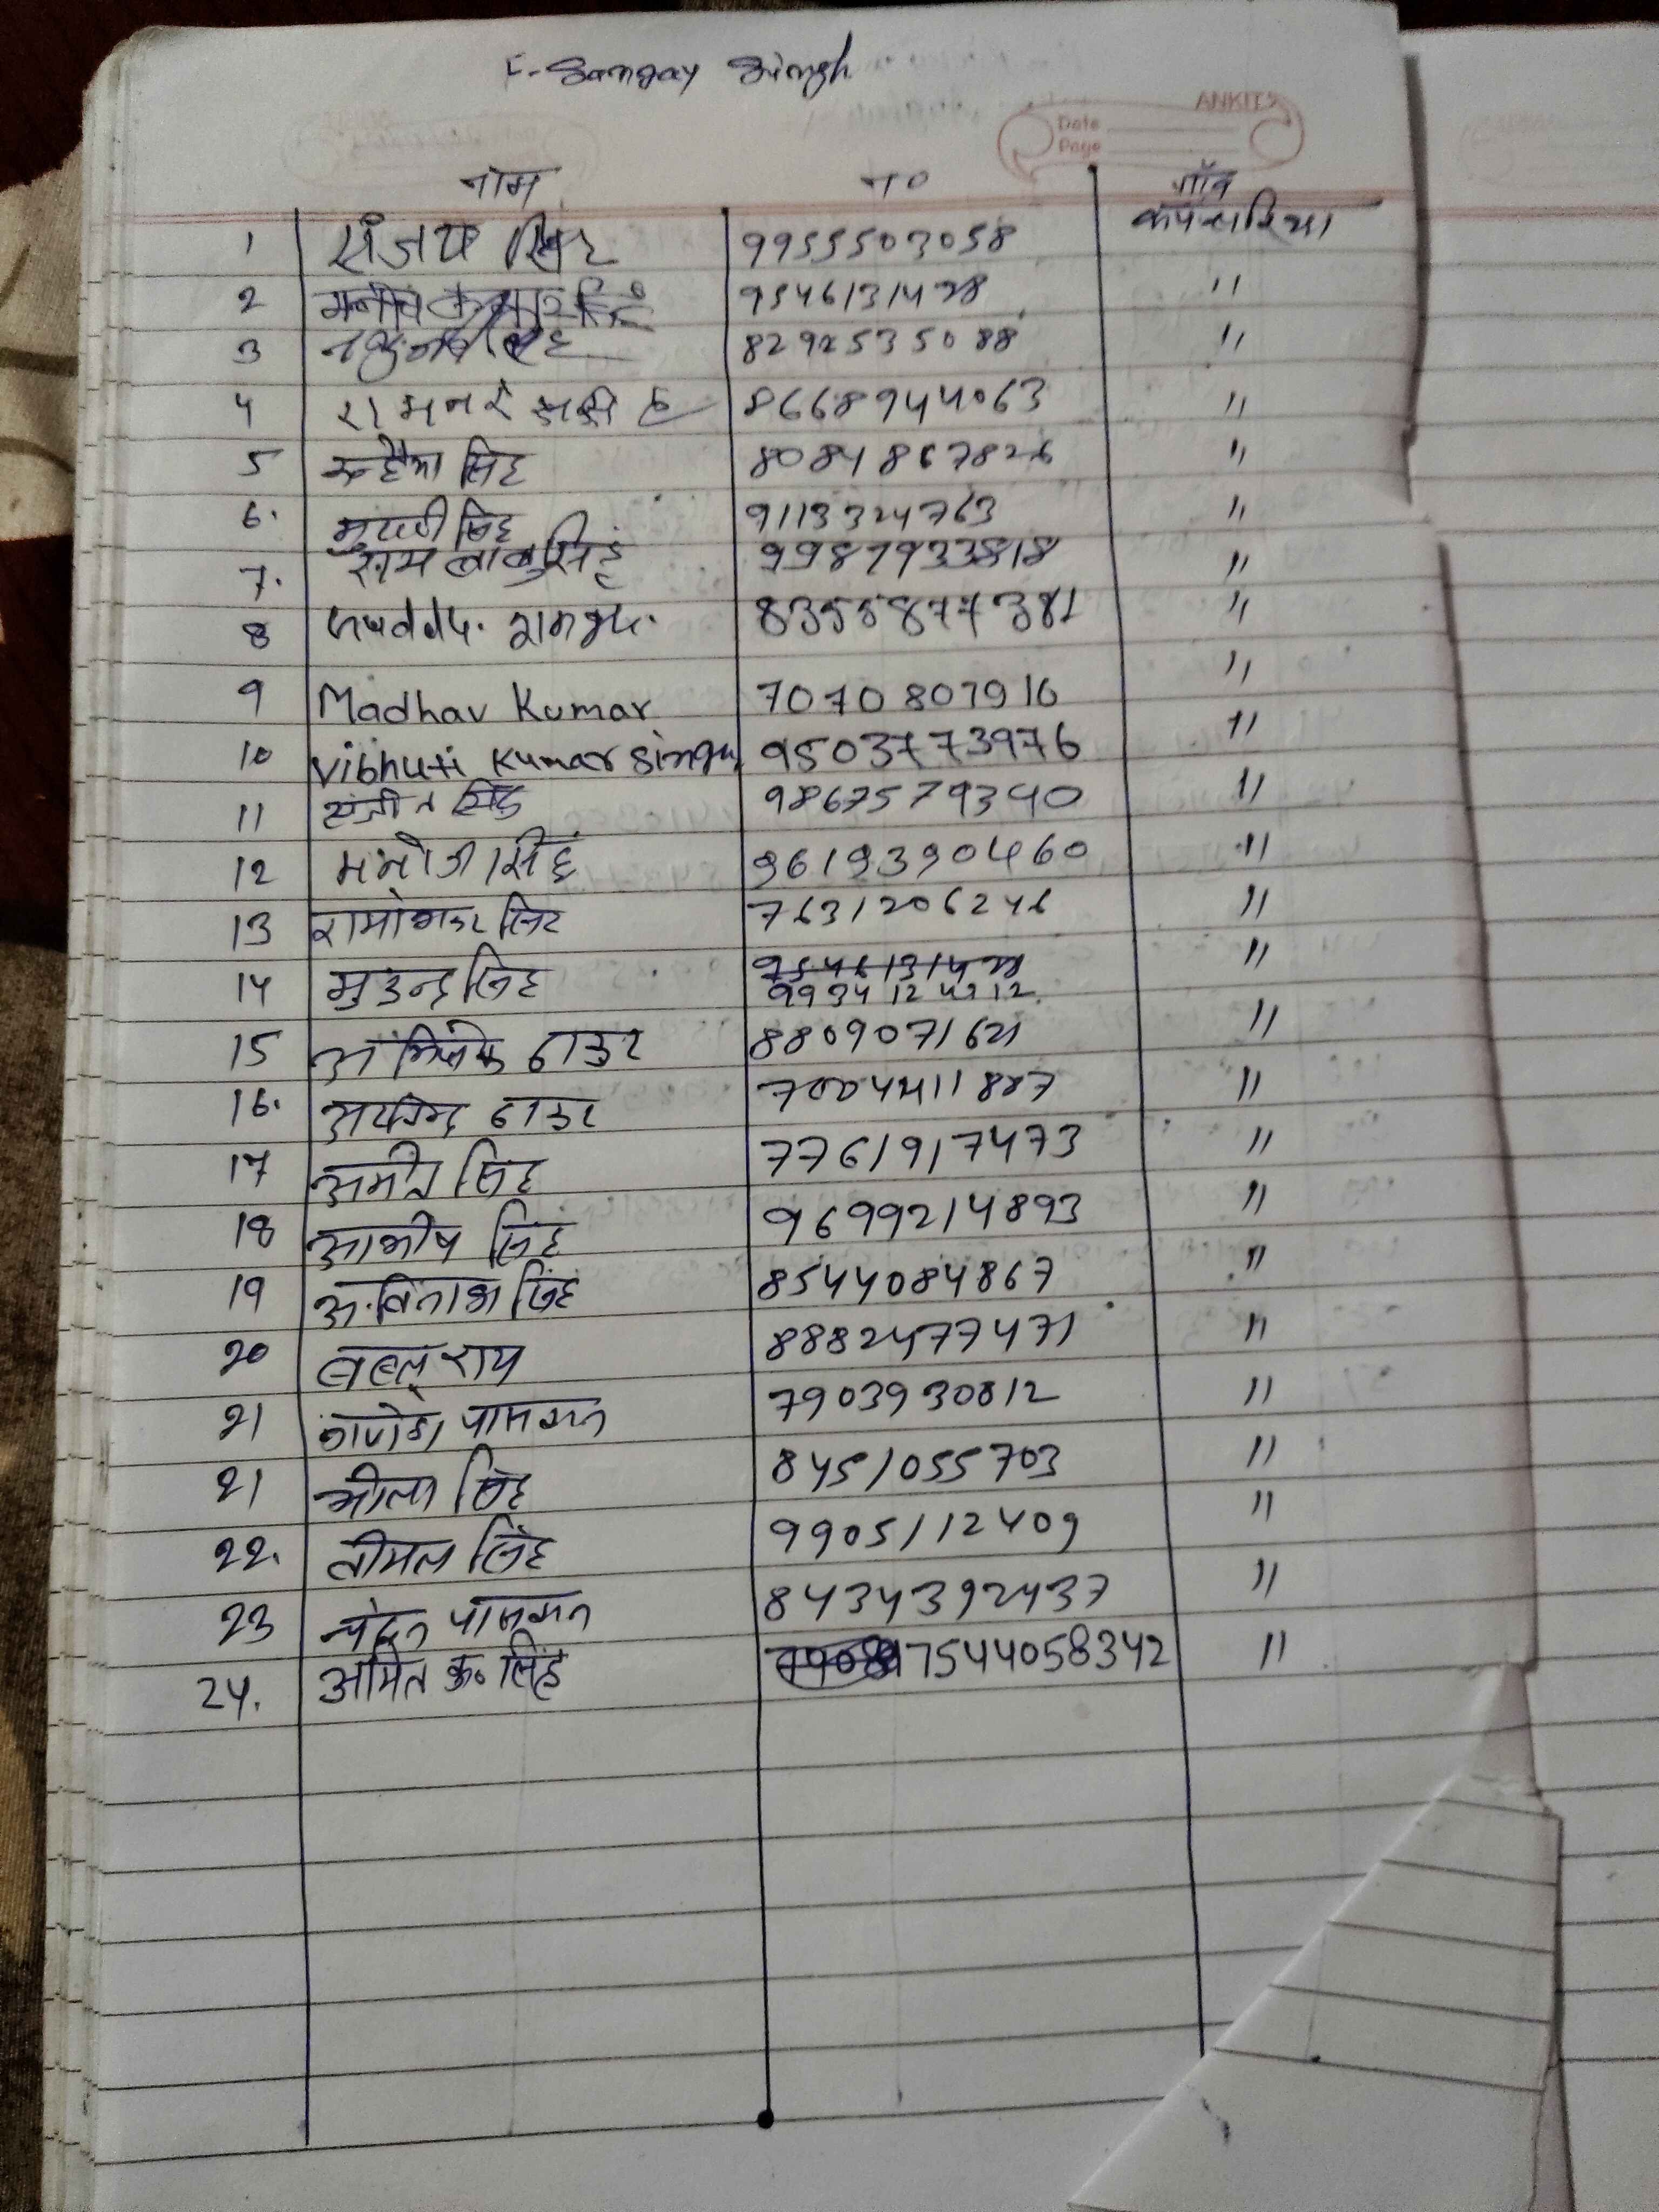 Sangay Singh
ANKIT
Date
Page
नाम न० गाँव
1 संजय सिंह 9955503058
2 9546131428 "
3 "
4 रामनरेश सिंह 8668944063 "
5 कन्हैया सिंह 8084867826 "
6. मुरारी सिंह 9113324763 "
7. राम बाबु सिंह 9987933818 "
8 8355877381 "
9 Madhav Kumar 7070807916 "
10 Vibhuti Kumar Singh 9503773976 "
11 संजीत सिंह 9867579340 "
12 मनोज सिंह 9619390460 "
13 सिंह 7631206246 "
14 सिंह 9546131428 "
9934124212
15 अभिषेक ठाकुर 8809071621 "
16. ठाकुर "
17 अमीत सिंह 7761917473 "
18 आशीष सिंह 9699214893 "
19 अविनाश सिंह 8544084867 "
20 राय 8882477471 "
21 गणेश पासवान 7903930812 "
21 भोला सिंह 8451055703 "
22. वीमल सिंह 9905112409 "
23 चंदन पासवान 8434392437 "
24. अमित कु० सिंह 7544058342 "